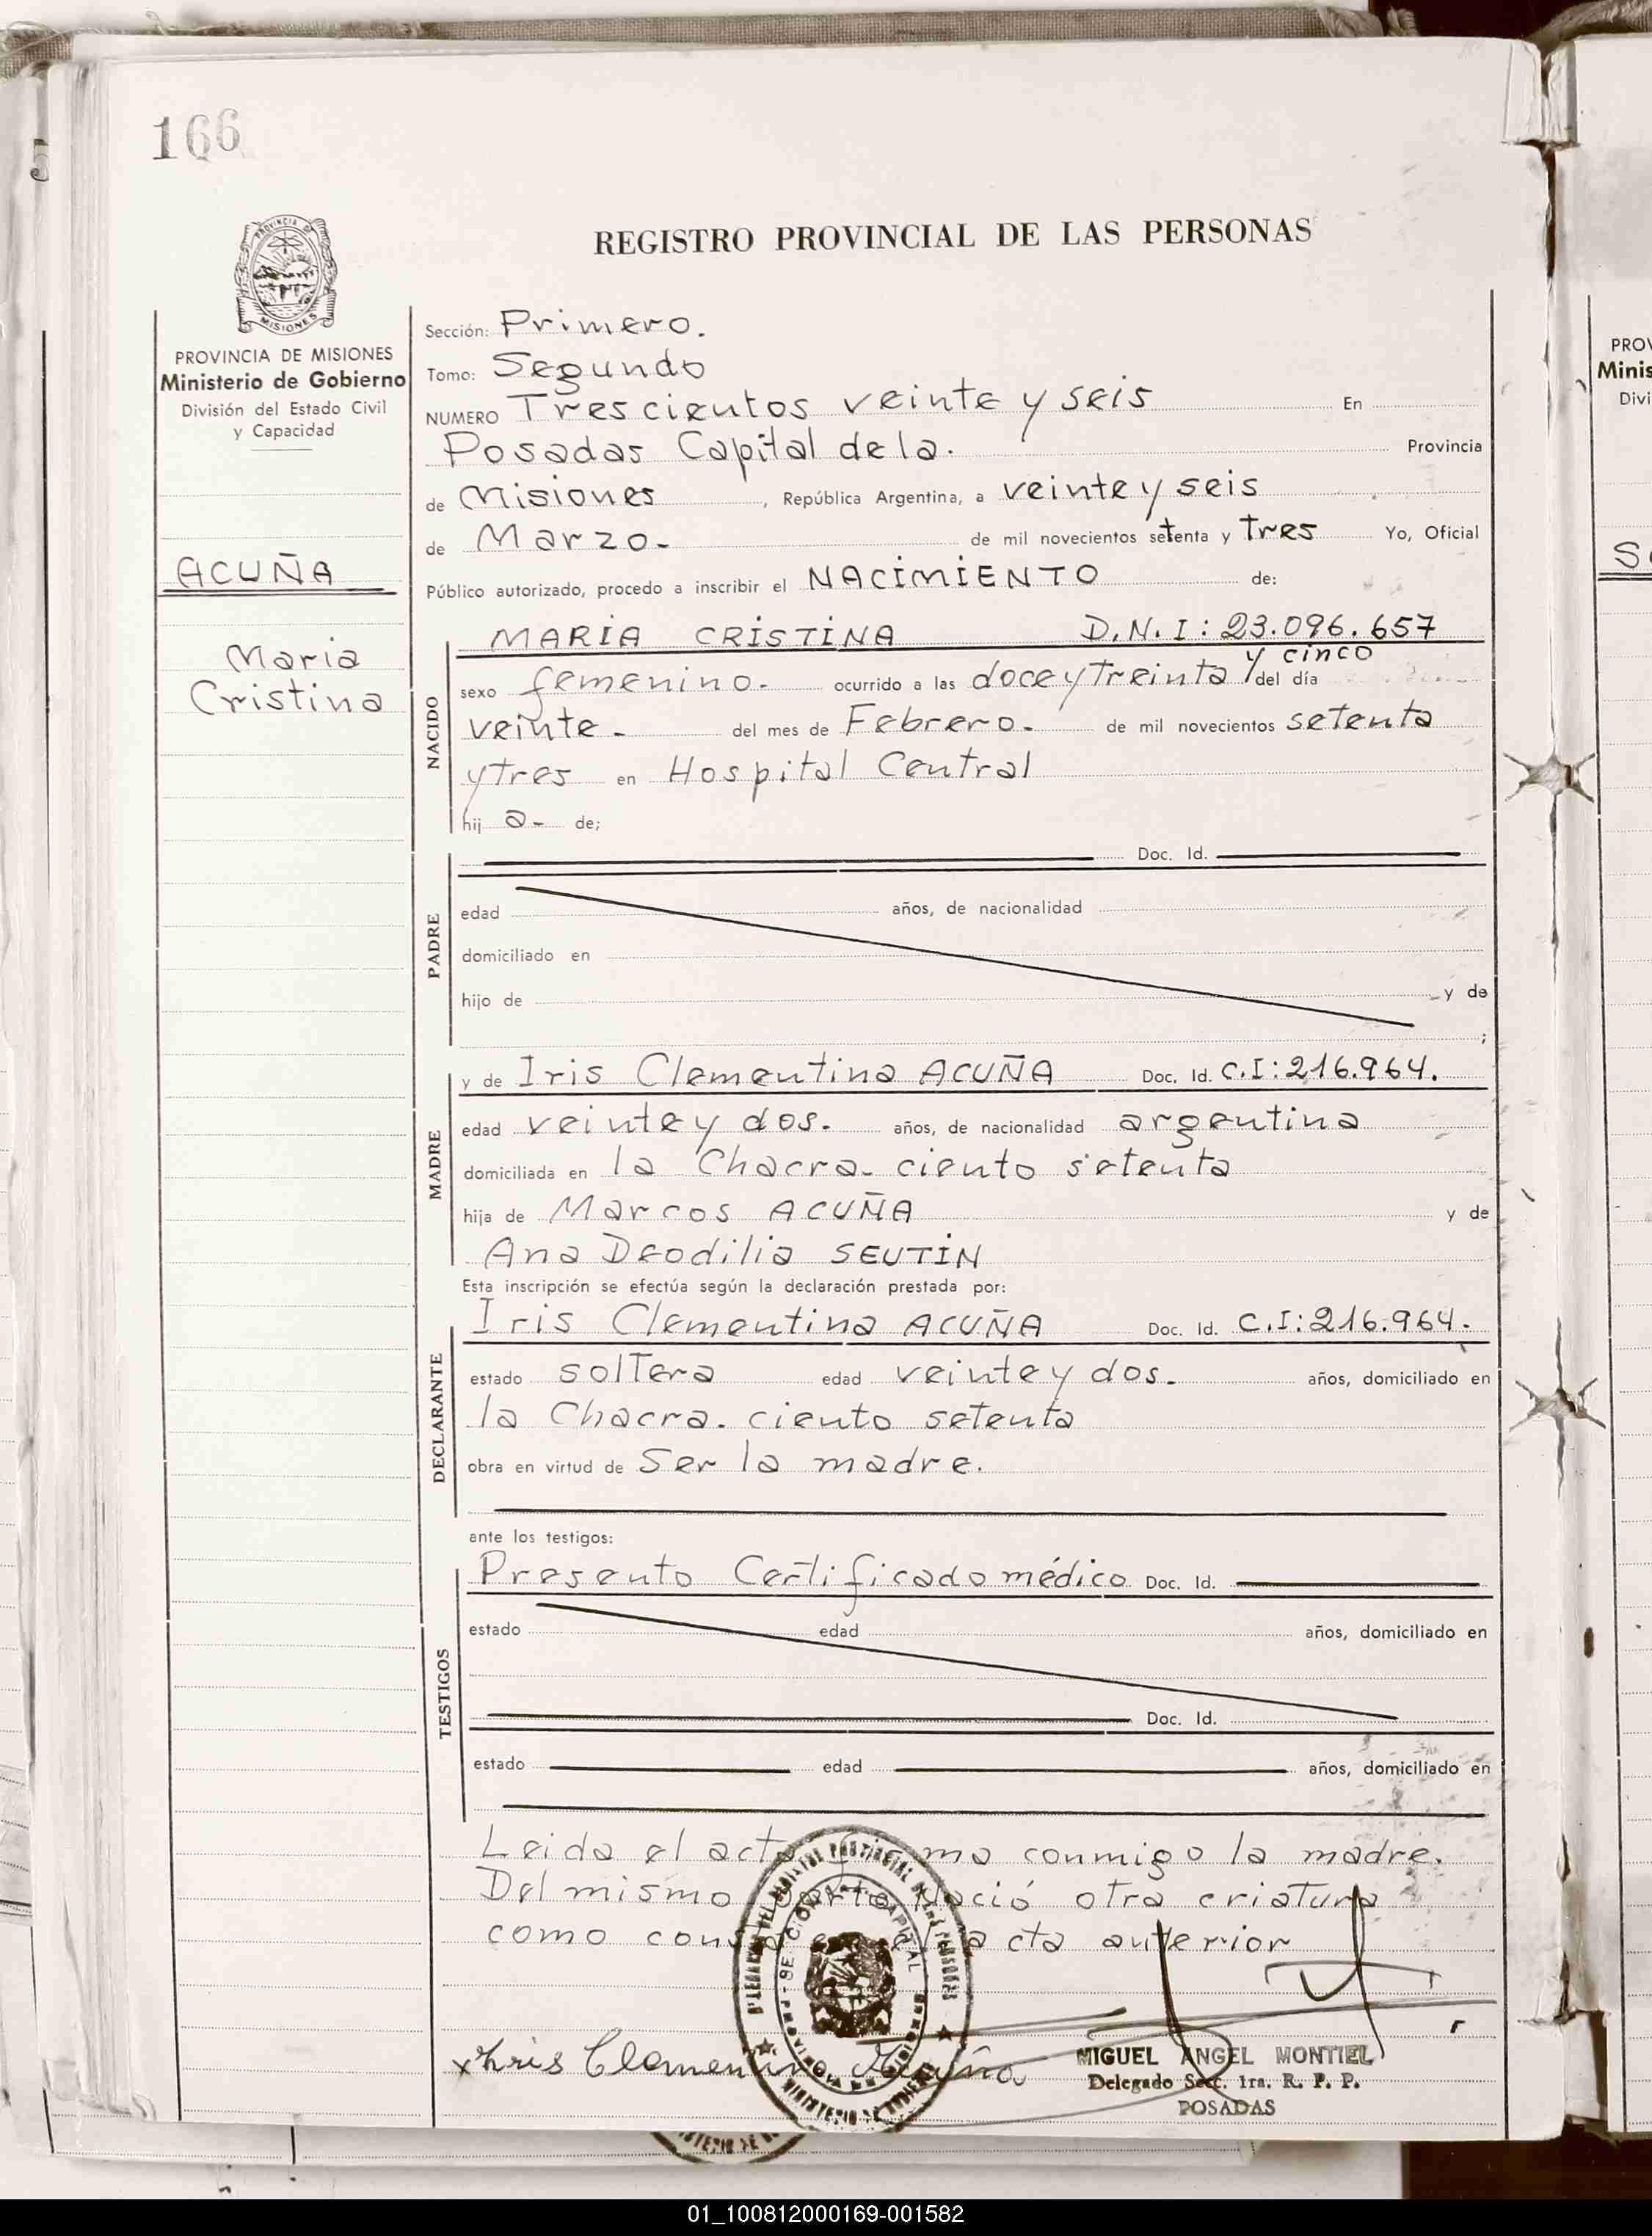 166
REGISTRO PROVINCIAL DE LAS PERSONAS
PROVINCIA DE MISIONES
Ministerio de Gobierno
División del Estado Civil
y Capacidad
ACUÑA
Maria
Cristina
Sección: Primero.
Tomo: Segundo
NUMERO Trescientos veinte y seis En
Posadas Capital de la. Provincia
de Misiones, República Argentina, a veinte y seis
de Marzo- de mil novecientos setenta y tres Yo, Oficial
Público autorizado, procedo a inscribir el NACIMIENTO de:
NACIDO
MARIA CRISTINA D.N.I: 23.096.657
y cinco
sexo femenino.- ocurrido a las doce y treinta del día
veinte- del mes de Febrero.- de mil novecientos setenta
y tres en Hospital Central
hij a- de;
PADRE
Doc. Id.
edad años, de nacionalidad
domiciliado en
hijo de y de
;
MADRE
y de Iris Clementina ACUÑA Doc. Id. C.I: 216.964.
edad veinte y dos.- años, de nacionalidad argentina
domiciliada en la Chacra- ciento setenta
hija de Marcos ACUÑA y de
Ana Deodilia SEUTIN
Esta inscripción se efectúa según la declaración prestada por:
DECLARANTE
Iris Clementina ACUÑA Doc. Id. C.I: 216.964.
estado soltera edad veinte y dos.- años, domiciliado en
la Chacra. ciento setenta
obra en virtud de Ser la madre.
ante los testigos:
TESTIGOS
Presento Certificado médico Doc. Id.
estado edad años, domiciliado en
Doc. Id.
estado edad años, domiciliado en
Leida el acta firma conmigo la madre.
Del mismo parto Nació otra criatura
como consta en el acta anterior
Iris Clementina Acuña
MIGUEL ANGEL MONTIEL
Delegado Secc. 1ra. R. P. P.
POSADAS
PROV
Minis
Divi
01_100812000169-001582